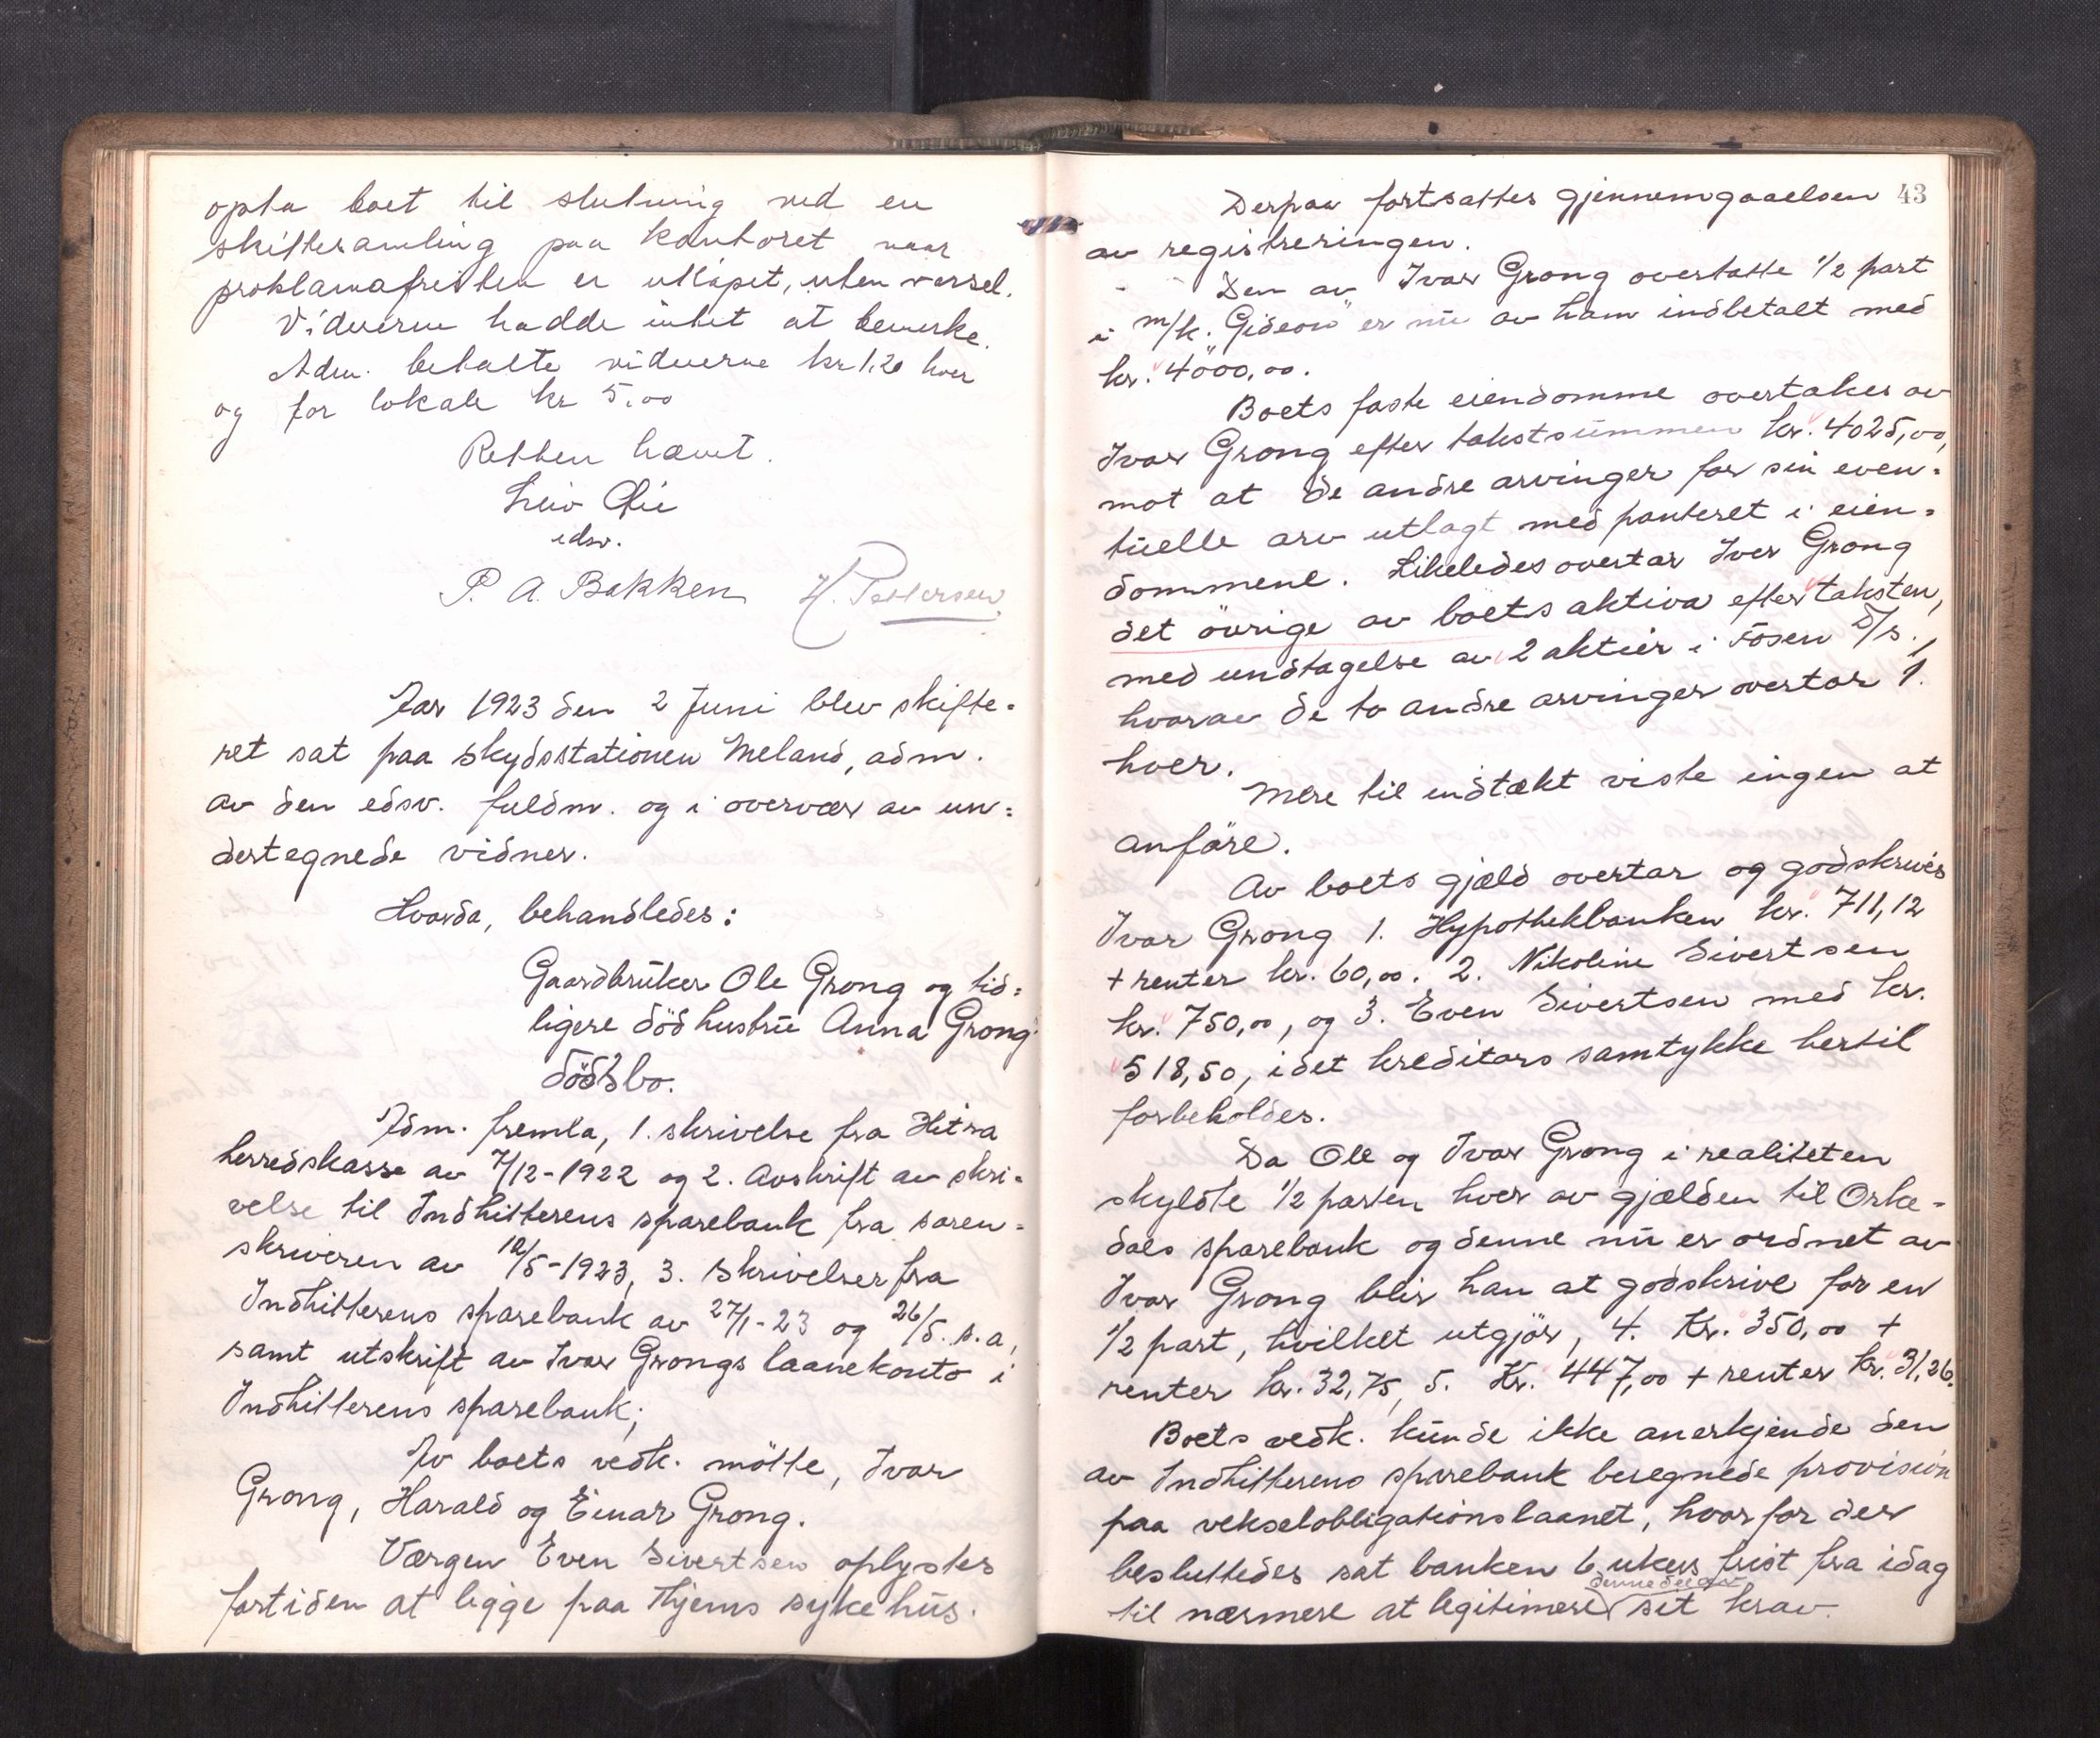 opta boet til slutning ved en
skiftesamling paa kontoret naar
proklamafristen er utløpet, uten varsel.
Vidnerne hadde intet at bemerke.
Adm. betalte vidnerne kr 1.20 hver
og for lokale kr 5.00
Retten hævet.
edsv.
P. A. Bakken H. Pettersen
Aar 1923 den 2 Juni blev skifte=
ret sat paa skydsstationen Meland, adm.
av den edsv. fuldm. og i overvær av un=
dertegnede vidner.
Hvorda, behandledes:
Gaardbruker Ole Grong og tid=
ligere död hustru Anna Grong
Dödsbo.
Adm. fremla, 1. skrivelse fra Hitra
herredskasse av 7/12-1922 og 2. Avskrift av skri=
velse til Indhitterens sparebank fra soren=
skriveren av 12/5-1923, 3. skrivelser fra
Indhitterens sparebank av 27/1-23 og 26/5. s.a,
samt utskrift av Ivar Grongs laanekonto i
Indhitterens sparebank;
Av boets vedk. mötte, Ivar
Grong, Harald og Einar Grong.
Værgen Even Sivertsen oplystes
fortiden at ligge paa Hjems sykehus.
43
Derpaa fortsattes gjennemgaaelsen
av registreringen.
Den av Ivar Grong overtatte 1/2 part
i m/k. "Gideon" er nu av ham indbetalt med
kr. 4000,00.
Boets faste eiendomme overtakes av
Ivar Grong efter takstsummen kr. 4025,00,
mot at de andre arvinger for sin even=
tuelle arv utlagt med panteret i eien=
dommene. Likeledes overtar Iver Grong
det övrige av boets aktiva efter taksten,
med undtagelse av 2 aktier i Fosen D/s.,
hvorav de to andre arvinger overtar 1.
hver.
Mere til indtækt viste ingen at
anföre.
Av boets gjæld overtar og godskrives
Ivar Grong 1. Hypothekbanken kr. 711,12
+ renter kr. 60,00. 2. Nikoline Sivertsen
kr. 750,00, og 3. Even Sivertsen med kr.
518,50, idet kreditors samtykke hertil
forbeholdes.
Da Ole og Ivar Grong i realiteten
skyldte 1/2 parten hver av gjælden til Orke=
dals sparebank og denne nu er ordnet av
Ivar Grong blir han at godskrive for en
1/2 part, hvilket utgjör, 4. Kr. 350,00 +
renter kr. 32,75, 5. Kr. 447,00 + renter kr. 31,26.
Boets vedk. kunde ikke anerkjende den
av Indhitterens sparebank beregnede provision
paa vekselobligationslaanet, hvorfor der
besluttedes sat banken 6 ukers frist fra idag
denne del av
til nærmere at legitimere sit krav.